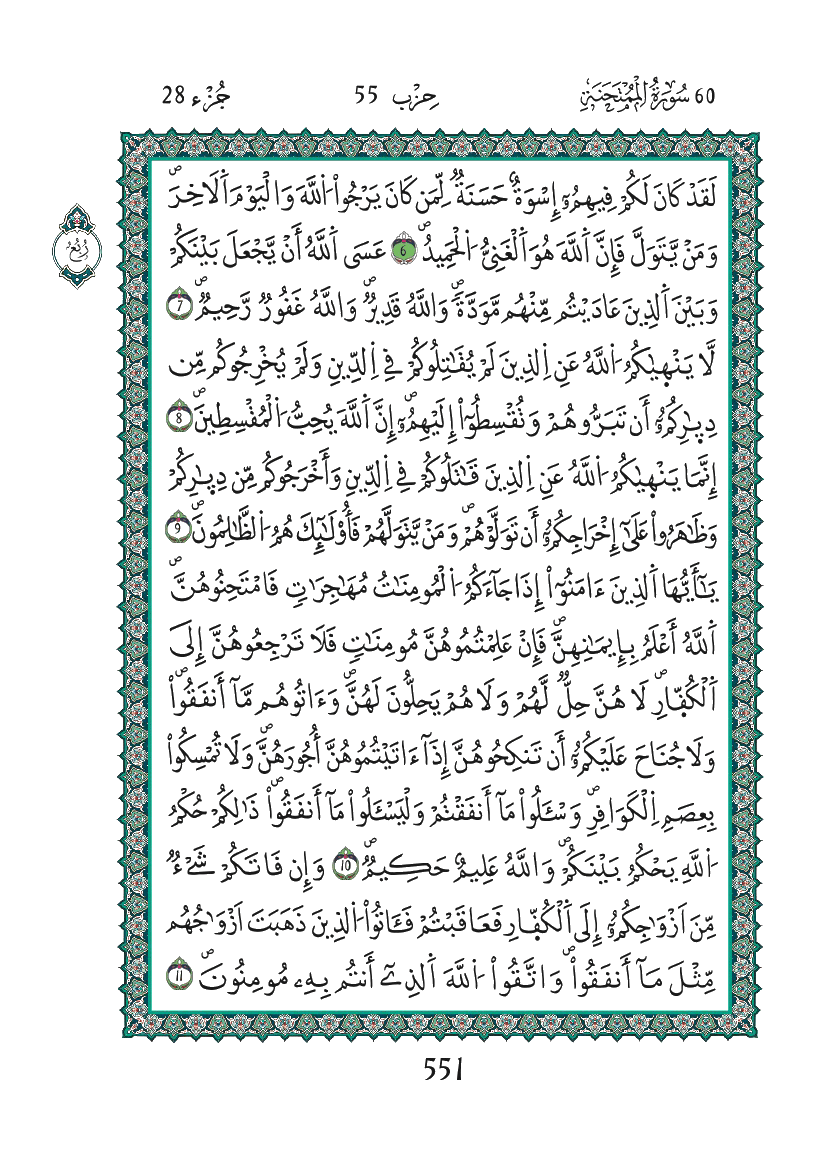 60 سُورَةُ الْمُمْتَحَنَةِ حِزْب 55 جُزْء 28
لَقَدْ كَانَ لَكُمْ فِيهِمُۥٓ إِسْوَةٌ حَسَنَةٌ لِّمَن كَانَ يَرْجُواْ اَللَّهَ وَالْيَوْمَ اَلَاخِرَۖ
رُبُعُ
وَمَنْ يَّتَوَلَّ فَإِنَّ اَللَّهَ هُوَ اَلْغَنِيُّ اُلْحَمِيدُۖ 6 عَسَى اَللَّهُ أَنْ يَّجْعَلَ بَيْنَكُمْ
وَبَيْنَ اَلذِينَ عَادَيْتُم مِّنْهُم مَّوَدَّةٗۖ وَاللَّهُ قَدِيرٌۖ وَاللَّهُ غَفُورٌ رَّحِيمٌۖ 7
لَّا يَنْهَيٰكُمُ اُللَّهُ عَنِ اِلذِينَ لَمْ يُقَٰتِلُوكُمْ فِے اِلدِّينِ وَلَمْ يُخْرِجُوكُم مِّن
دِيٰ۪رِكُمُۥٓ أَن تَبَرُّوهُمْ وَتُقْسِطُوٓاْ إِلَيْهِمُۥٓۖ إِنَّ اَللَّهَ يُحِبُّ اُلْمُقْسِطِينَۖ 8
إِنَّمَا يَنْهَيٰكُمُ اُللَّهُ عَنِ اِلذِينَ قَٰتَلُوكُمْ فِے اِلدِّينِ وَأَخْرَجُوكُم مِّن دِيٰ۪رِكُمْ
وَظَٰهَرُواْ عَلَىٰٓ إِخْرَاجِكُمُۥٓ أَن تَوَلَّوْهُمْۖ وَمَنْ يَّتَوَلَّهُمْ فَأُوْلَٰٓئِكَ هُمُ اُلظَّٰلِمُونَۖ 9
يَٰٓأَيُّهَا اَلذِينَ ءَامَنُوٓاْ إِذَا جَآءَكُمُ اُلْمُومِنَٰتُ مُهَٰجِرَٰتٖ فَامْتَحِنُوهُنَّۖ
اَللَّهُ أَعْلَمُ بِإِيمَٰنِهِنَّۖ فَإِنْ عَلِمْتُمُوهُنَّ مُومِنَٰتٖ فَلَا تَرْجِعُوهُنَّ إِلَى
اَلْكُفّ۪ارِۖ لَا هُنَّ حِلٌّ لَّهُمْ وَلَا هُمْ يَحِلُّونَ لَهُنَّۖ وَءَاتُوهُم مَّآ أَنفَقُواْۖ
وَلَا جُنَاحَ عَلَيْكُمُۥٓ أَن تَنكِحُوهُنَّ إِذَآ ءَاتَيْتُمُوهُنَّ أُجُورَهُنَّۖ وَلَا تُمْسِكُواْ
بِعِصَمِ اِلْكَوَافِرِۖ وَسْـَٔلُواْ مَآ أَنفَقْتُمْ وَلْيَسْـَٔلُواْ مَآ أَنفَقُواْۖ ذَٰلِكُمْ حُكْمُ
اُللَّهِ يَحْكُمُ بَيْنَكُمْۖ وَاللَّهُ عَلِيمٌ حَكِيمٌۖ 10 وَإِن فَاتَكُمْ شَےْءٌ
مِّنَ اَزْوَٰجِكُمُۥٓ إِلَى اَلْكُفّ۪ارِ فَعَاقَبْتُمْ فَـَٔاتُواْ اُلذِينَ ذَهَبَتَ اَزْوَٰجُهُم
مِّثْلَ مَآ أَنفَقُواْۖ وَاتَّقُواْ اُللَّهَ اَلذِےٓ أَنتُم بِهِۦ مُومِنُونَۖ 11
551